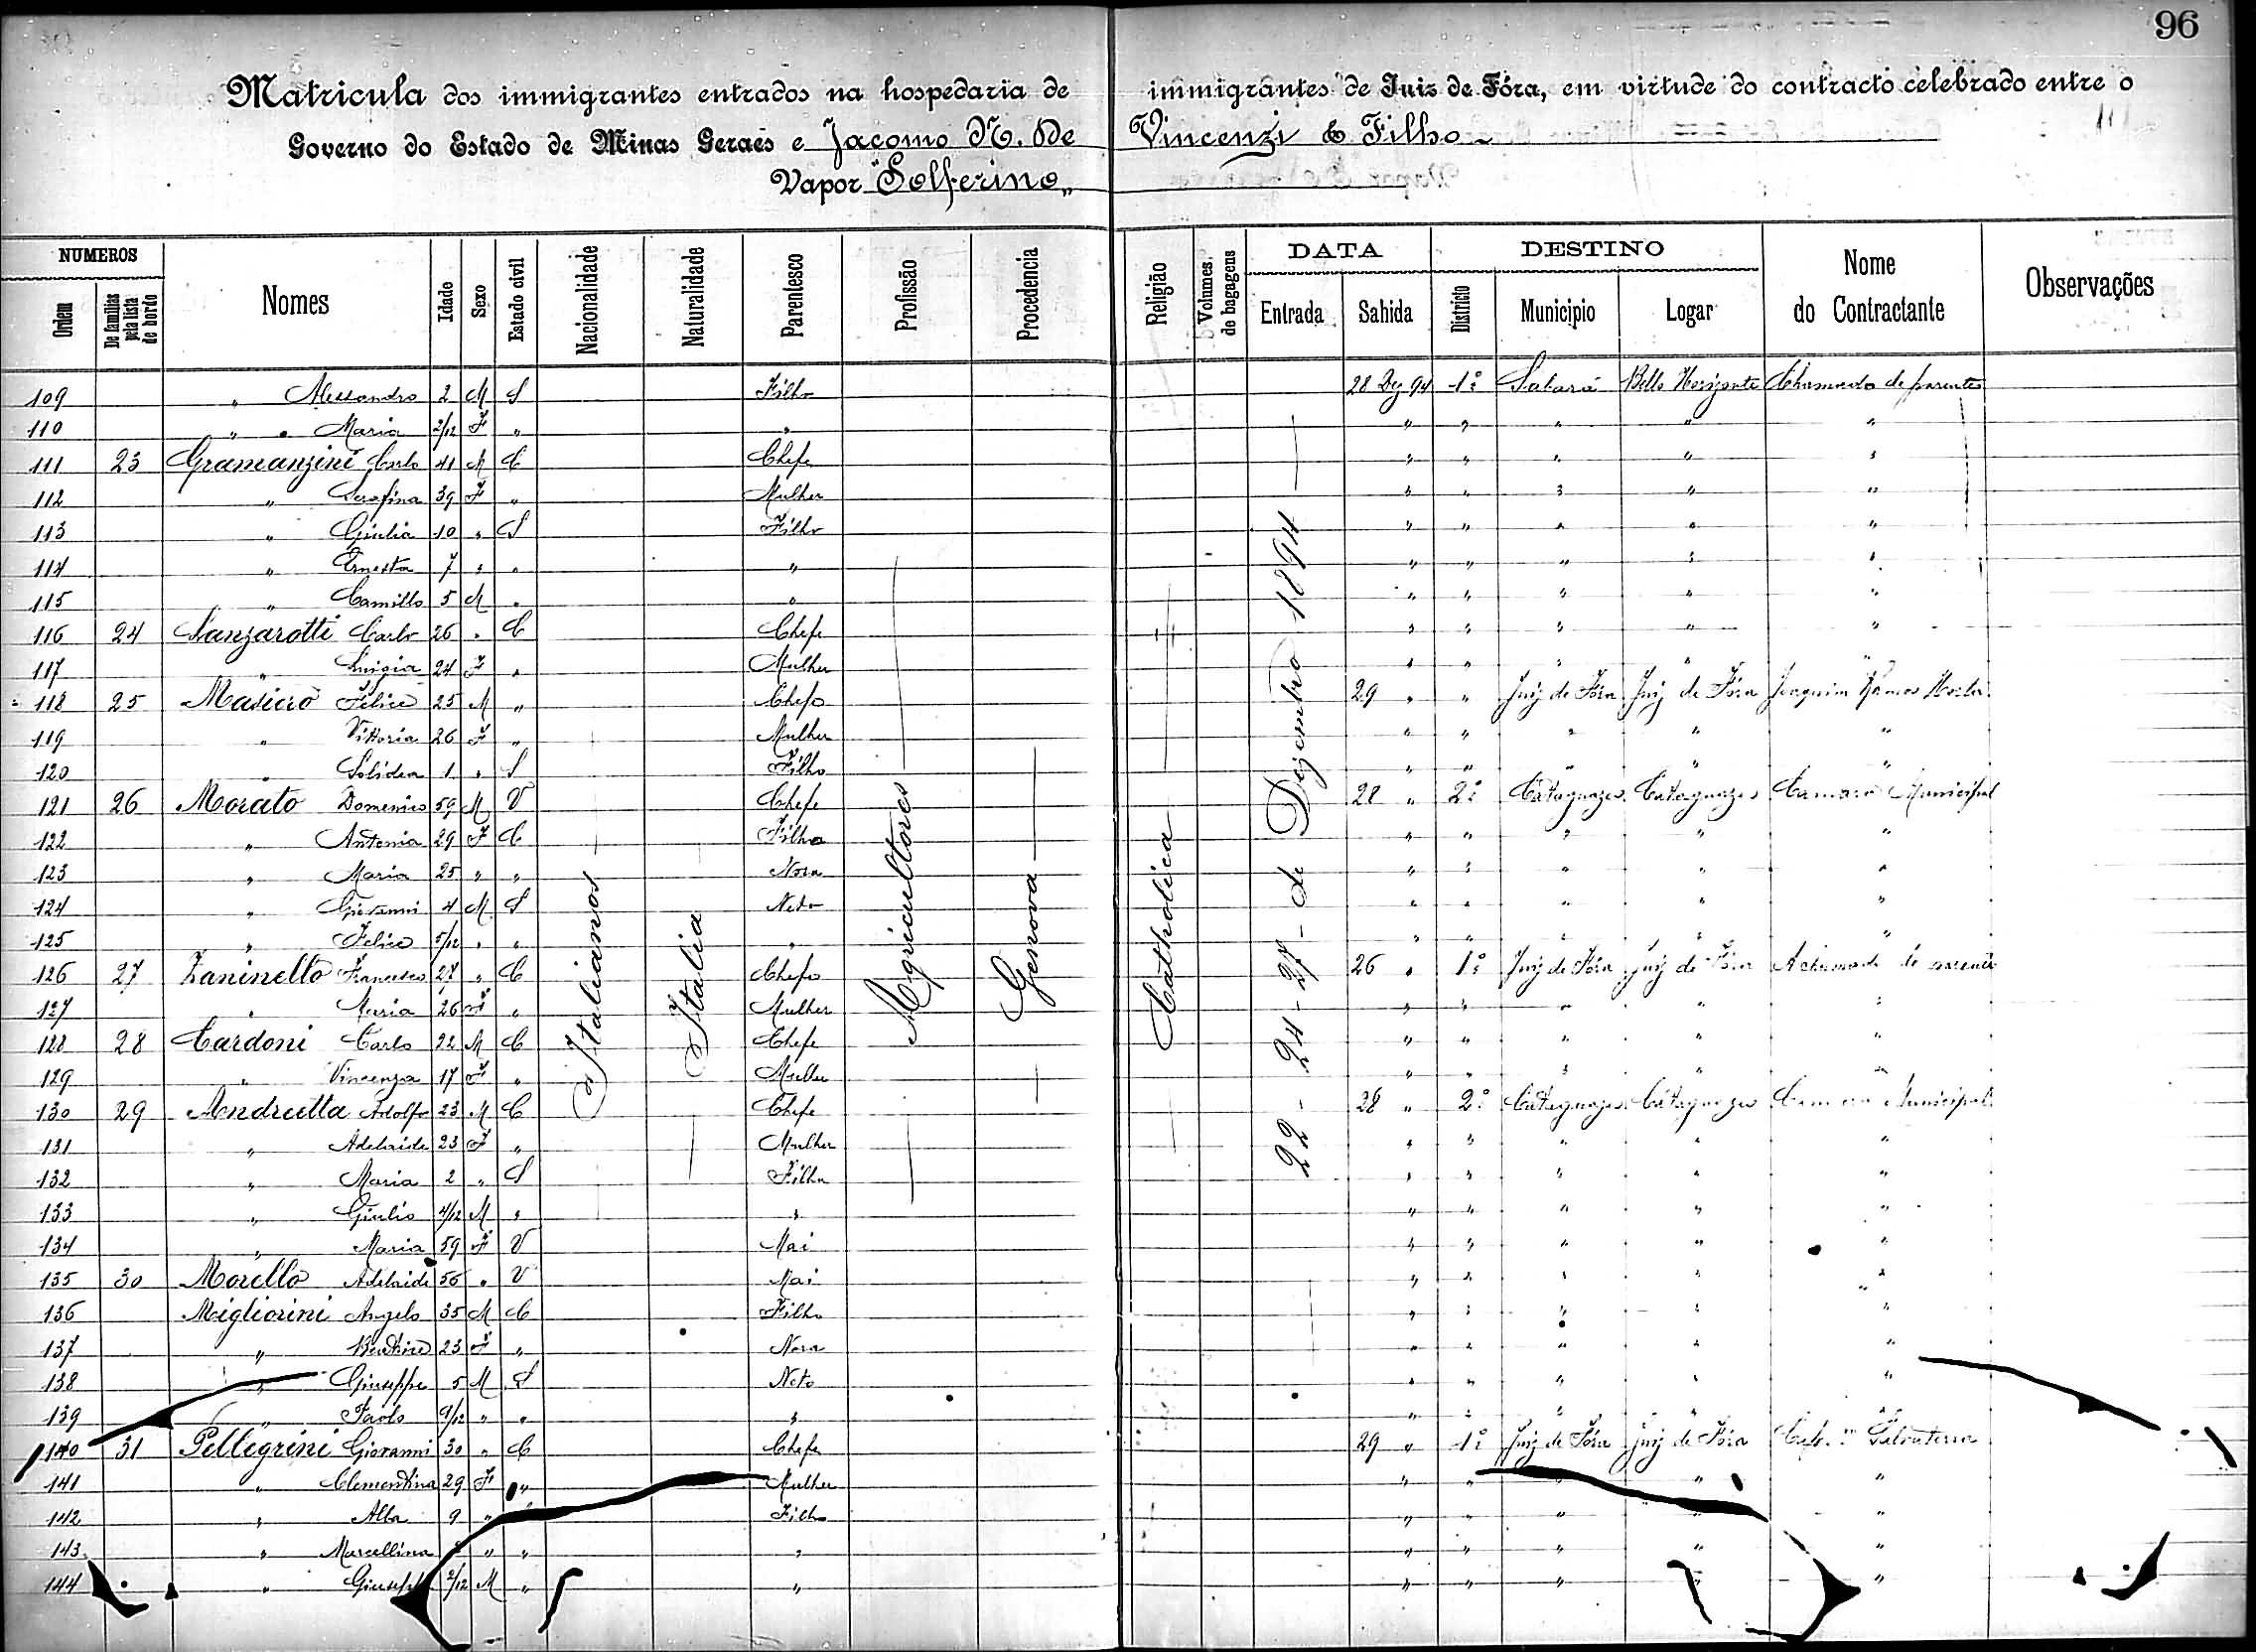 96
Matricula dos immigrantes entrados na hospedaria de immigrantes de Juiz de Fóra, em virtude do contracto celebrado entre o
Governo do Estado de Minas Geraes e Jacomo N. De Vincenzi & Filho
Vapor "Solferino"
NUMEROS DATA DESTINO
Ordem De familias pela lista de bordo Nomes Idade Sexo Estado civil Nacionalidade Naturalidade Parentesco Profissão Procedencia Religião Volumes de bagagens Entrada Sahida Districto Municipio Logar Nome do Contractante Observações
Italianos
Italia
Agricultores
Genova
Catholica
22 - 24 - 27 - de Dezembro 1894
109 " Alessandro 2 M S Filho 28 Dez 94 1º Sabará Bello Horizonte Chamado de parentes
110 " " Maria 2/12 F " " " " " " "
111 23 Gramanzini Carlo 41 M C Chefe " " " " "
112 " Serafina 39 F " Mulher " " " " "
113 " Giulia 10 " S Filho " " " " "
114 " Ernesta 7 " " " " " " " "
115 " Camillo 5 M " " " " " " "
116 24 Lanzarotti Carlo 26 " C Chefe " " " " "
117 " Luigia 24 F " Mulher " " " " "
118 25 Masiero Felice 25 M " Chefe 29 " " Juiz de Fóra Juiz de Fóra Joaquim Ramos
119 " Vittoria 26 F " Mulher " " " " "
120 " Solidea 1 " S Filho " " " " "
121 26 Morato Domenico 59 M V Chefe 28 " 2º Cataguazes Cataguazes Camara Municipal
122 " Antonia 29 F C Filha " " " " "
123 " Maria 25 " " Nora " " " " "
124 " Giovanni 4 M S Neto " " " " "
125 " Felice 5/12 " " " " " " " "
126 27 Zaninello Francesco 27 " C Chefe 26 " 1º Juiz de Fóra Juiz de Fóra A chamado de parente
127 " Maria 26 F " Mulher " " " " "
128 28 Cardoni Carlo 22 M C Chefe " " " " "
129 " Vincenza 17 F " Mulher " " " " "
130 29 Andreetta Adolfo 23 M C Chefe 28 " 2º Cataguazes Cataguazes Camara Municipal
131 " Adelaide 23 F " Mulher " " " " "
132 " Maria 2 " S Filha " " " " "
133 " Giulio 4/12 M " " " " " " "
134 " Maria 59 F V Mai " " " " "
135 30 Morello Adelaide 56 " V Mai " " " " "
136 Migliorini Angelo 35 M C Filho " " " " "
137 " Beatrice 23 F " Nora " " " " "
138 " Giuseppe 5 M S Neto " " " " "
139 " Paolo 9/12 " " " " " " " "
140 31 Pellegrini Giovanni 30 " C Chefe 29 " 1º Juiz de Fóra Juiz de Fóra Salvaterra
141 " Clementina 29 F " Mulher " " " " "
142 " Alba 9 " Filho " " " " "
143 " Marcellina " " " " " " " "
144 " Giuseppe 2/12 M " " " " " " "